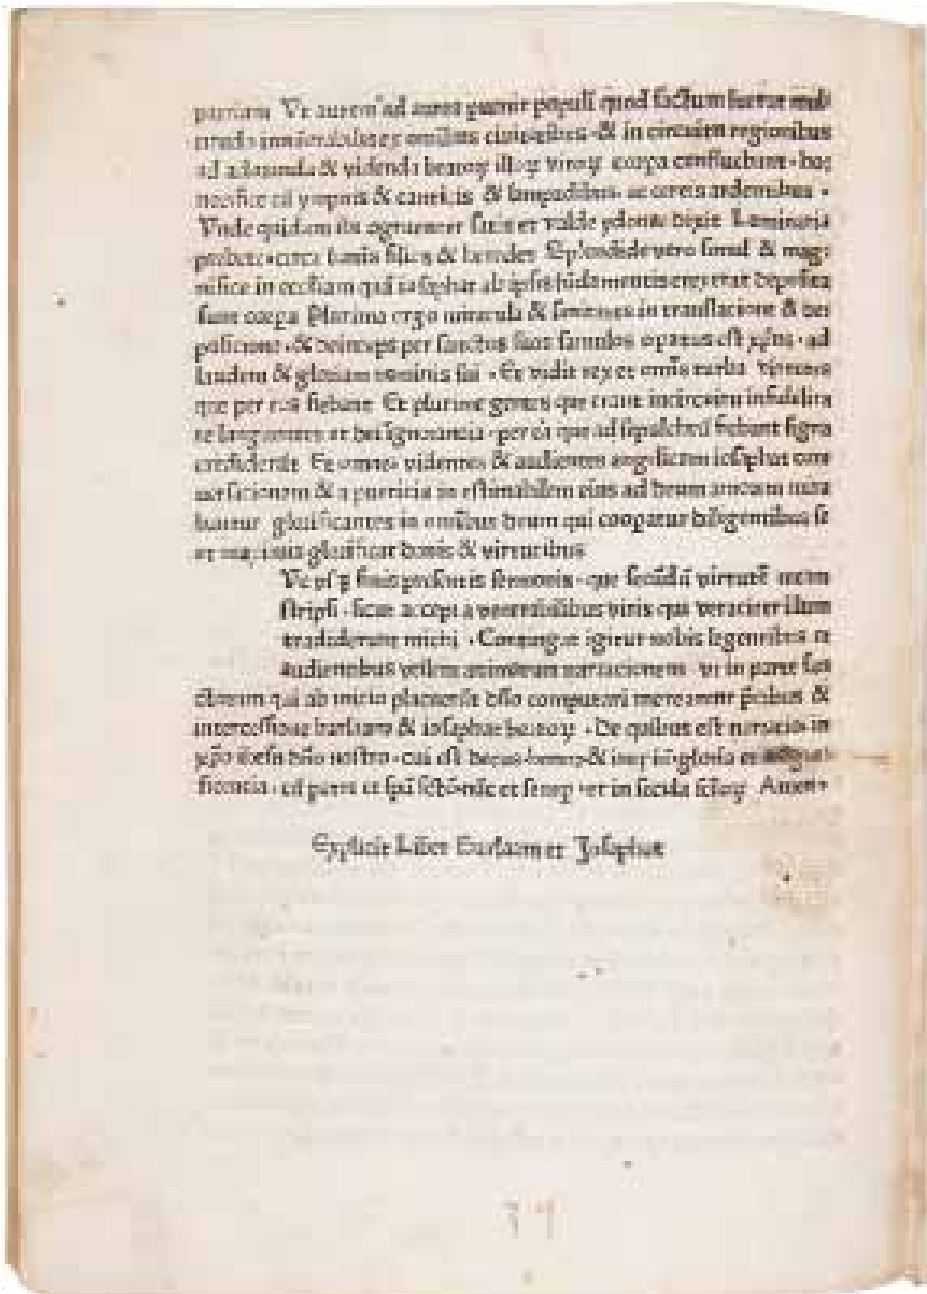 patriam Vt autem ad aures peruenit populi quod factum fuerat mul
titudo innumerabilis ex omnibus ciuitatibus · & in circuitu regionibus
ad adoranda & videnda beatoꝝ illoꝝ viroꝝ corpa confluebant ·
cū ympnis & canticis & lampadibus ac cereis ardentibus ·
Vnde quidam ibi agruenter satis et valde ydonee dixit Luminaria
circa lucis filios & heredes Splendide vero simul & mag
nifice in ecclesiam quā iosaphat ab ipsis fundamentis erexerat deposita
sunt corpa Plurima ergo miracula & sanitates in translacione & de
posicione · & deinceps per sanctos suos famulos operatus est xp̄us · ad
laudem & gloriam nominis sui · Et vidit rex et omīs turba virtutes
que per eos fiebant Et plurime gentes que erant incircuitu infidelita
te languentes et dei ignorancia · per ea que ad sepulchrū fiebant signa
crediderūt Et omnes videntes & audientes angelicam iosaphat con
uersacionem & a puericia in estimabilem eius ad deum amorem mira
bantur glorificantes in omnibus deum qui coopatur diligentibus se
et maximis glorificat donis & virtutibus
finis presentis sermonis · que secūdū virtutē meam
scripsi · sicut accepi a venerabilibus viris qui veraciter illum
tradiderunt michi · Contingat igitur nobis legentibus et
audientibus vtilem animarum narracionem vt in parte
qui ab inicio placuerūt dño computari mereamur p̄cibus &
intercessione barlaam & iosaphat beatoꝝ · De quibus est narracio · in
xp̄o ihesu dño nostro · cui est decus · honor · & imꝑiū · gloria et magni
ficencia · cū patre et spū sctō · nūc et semꝑ · et in secula sctoꝝ Amen ·
Explicit Liber Barlaam et Josaphat